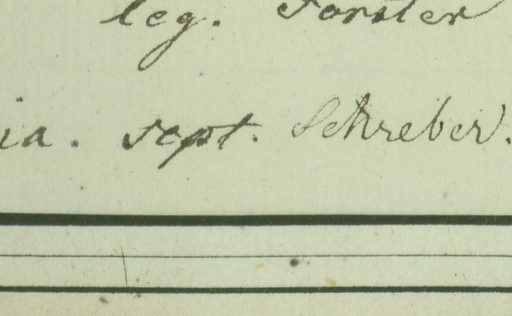 leg. Forster
ia. sept. Schreber.